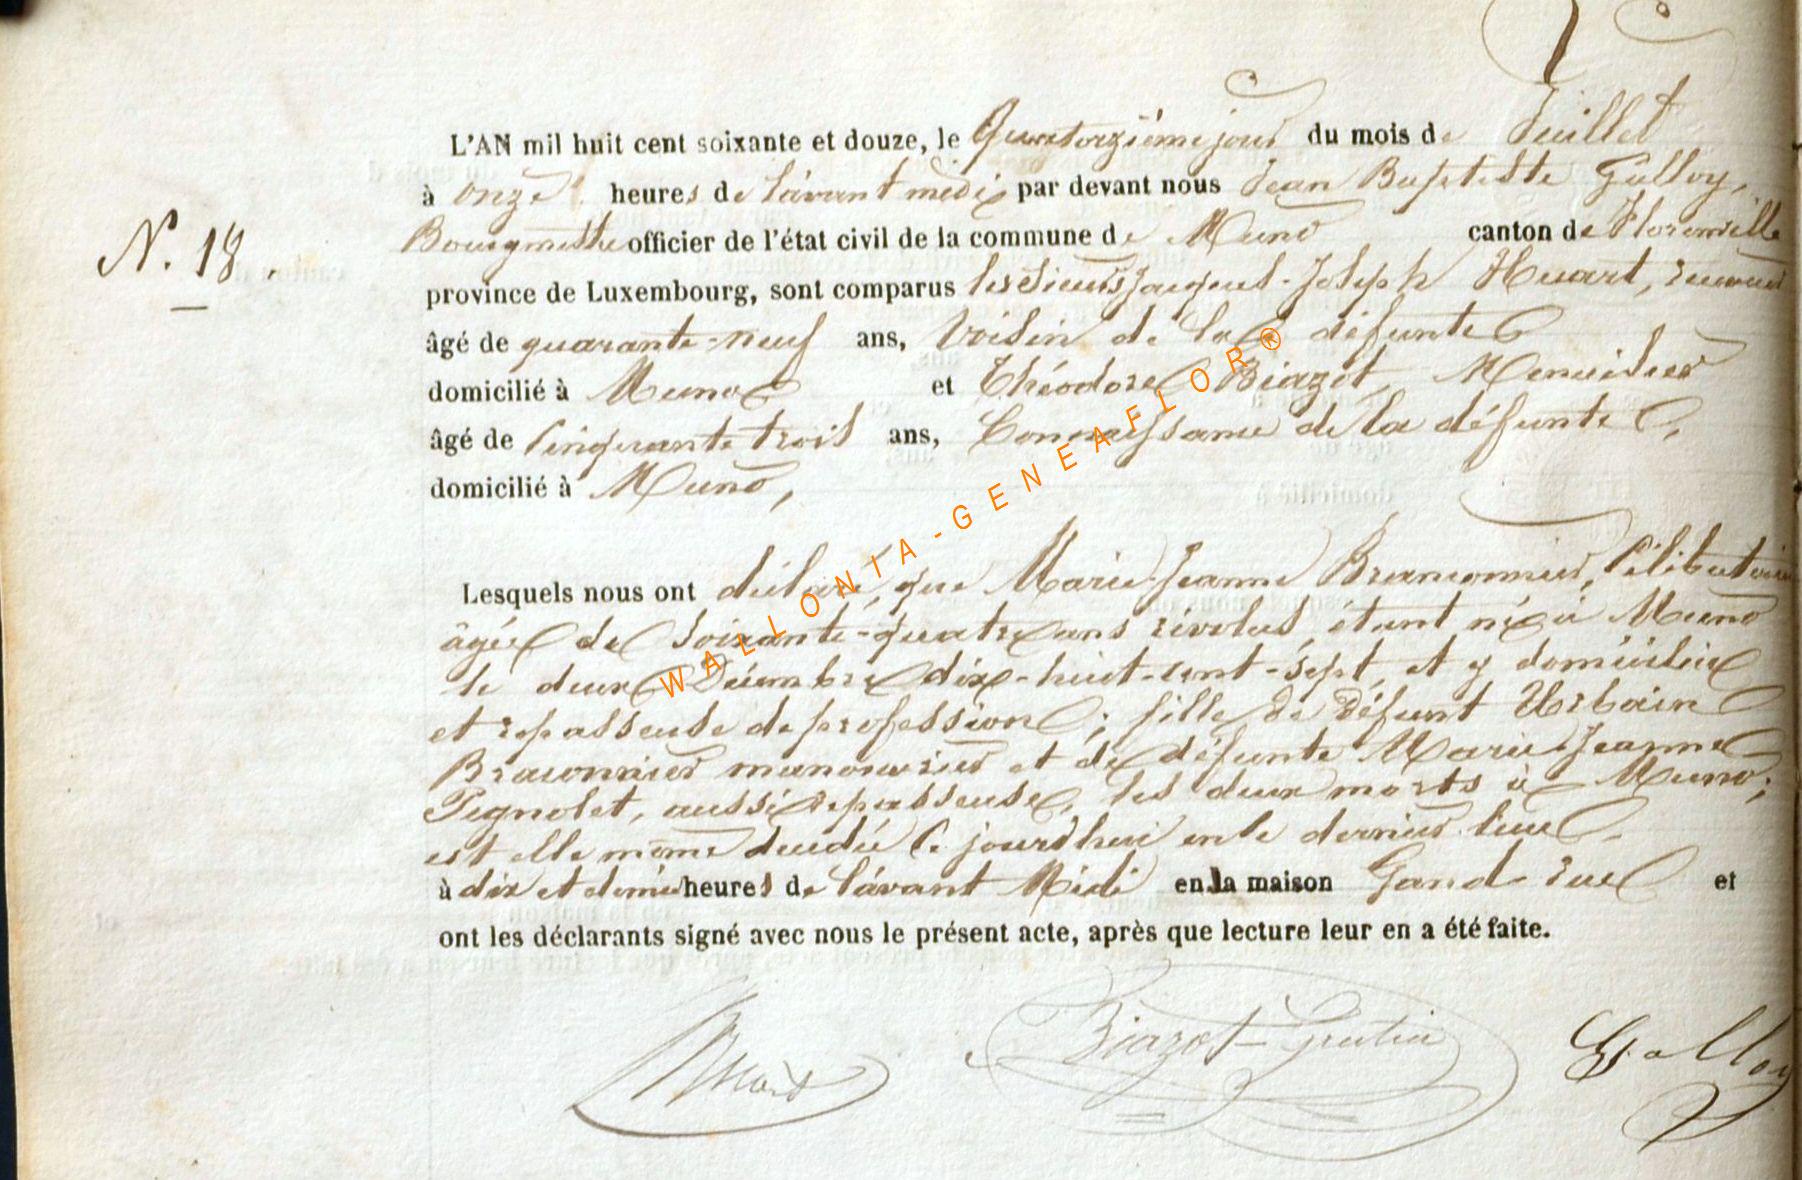 L'AN mil huit cent soixante et douze, le Quatorzième jour du mois de Juillet
à onze heures de l'avant midi par devant nous Jean Baptiste Galloy,
N. 18. Bourgmestre officier de l'état civil de la commune de Muno canton de Florenville
province de Luxembourg, sont comparus les Sieurs Jacques-Joseph Huart,
âgé de quarante-neuf ans, Voisin de la défunte
domicilié à Muno et Théodore Biazot, Menuisier
âgé de Cinquante trois ans, Connaissance de la défunte,
domicilié à Muno,
Lesquels nous ont déclaré, que Marie-Jeanne Braconnier, Célibataire
âgée de Soixante-quatre ans révolus, étant née à Muno
le deux Décembre dix-huit-cent-sept et y domiciliée
et repasseuse de profession; fille de défunt Urbain
Braconnier manouvrier et de défunte Marie-Jeanne
Pignolet, aussi repasseuse, les deux morts à Muno;
est elle même décédée ce jourd'hui en le dernier lieu
à dix et demie heures de l'avant Midi en la maison Gand rue et
ont les déclarants signé avec nous le présent acte, après que lecture leur en a été faite.
Huart Biazot- Galloy
WALLONIA-GENEAFLOR®